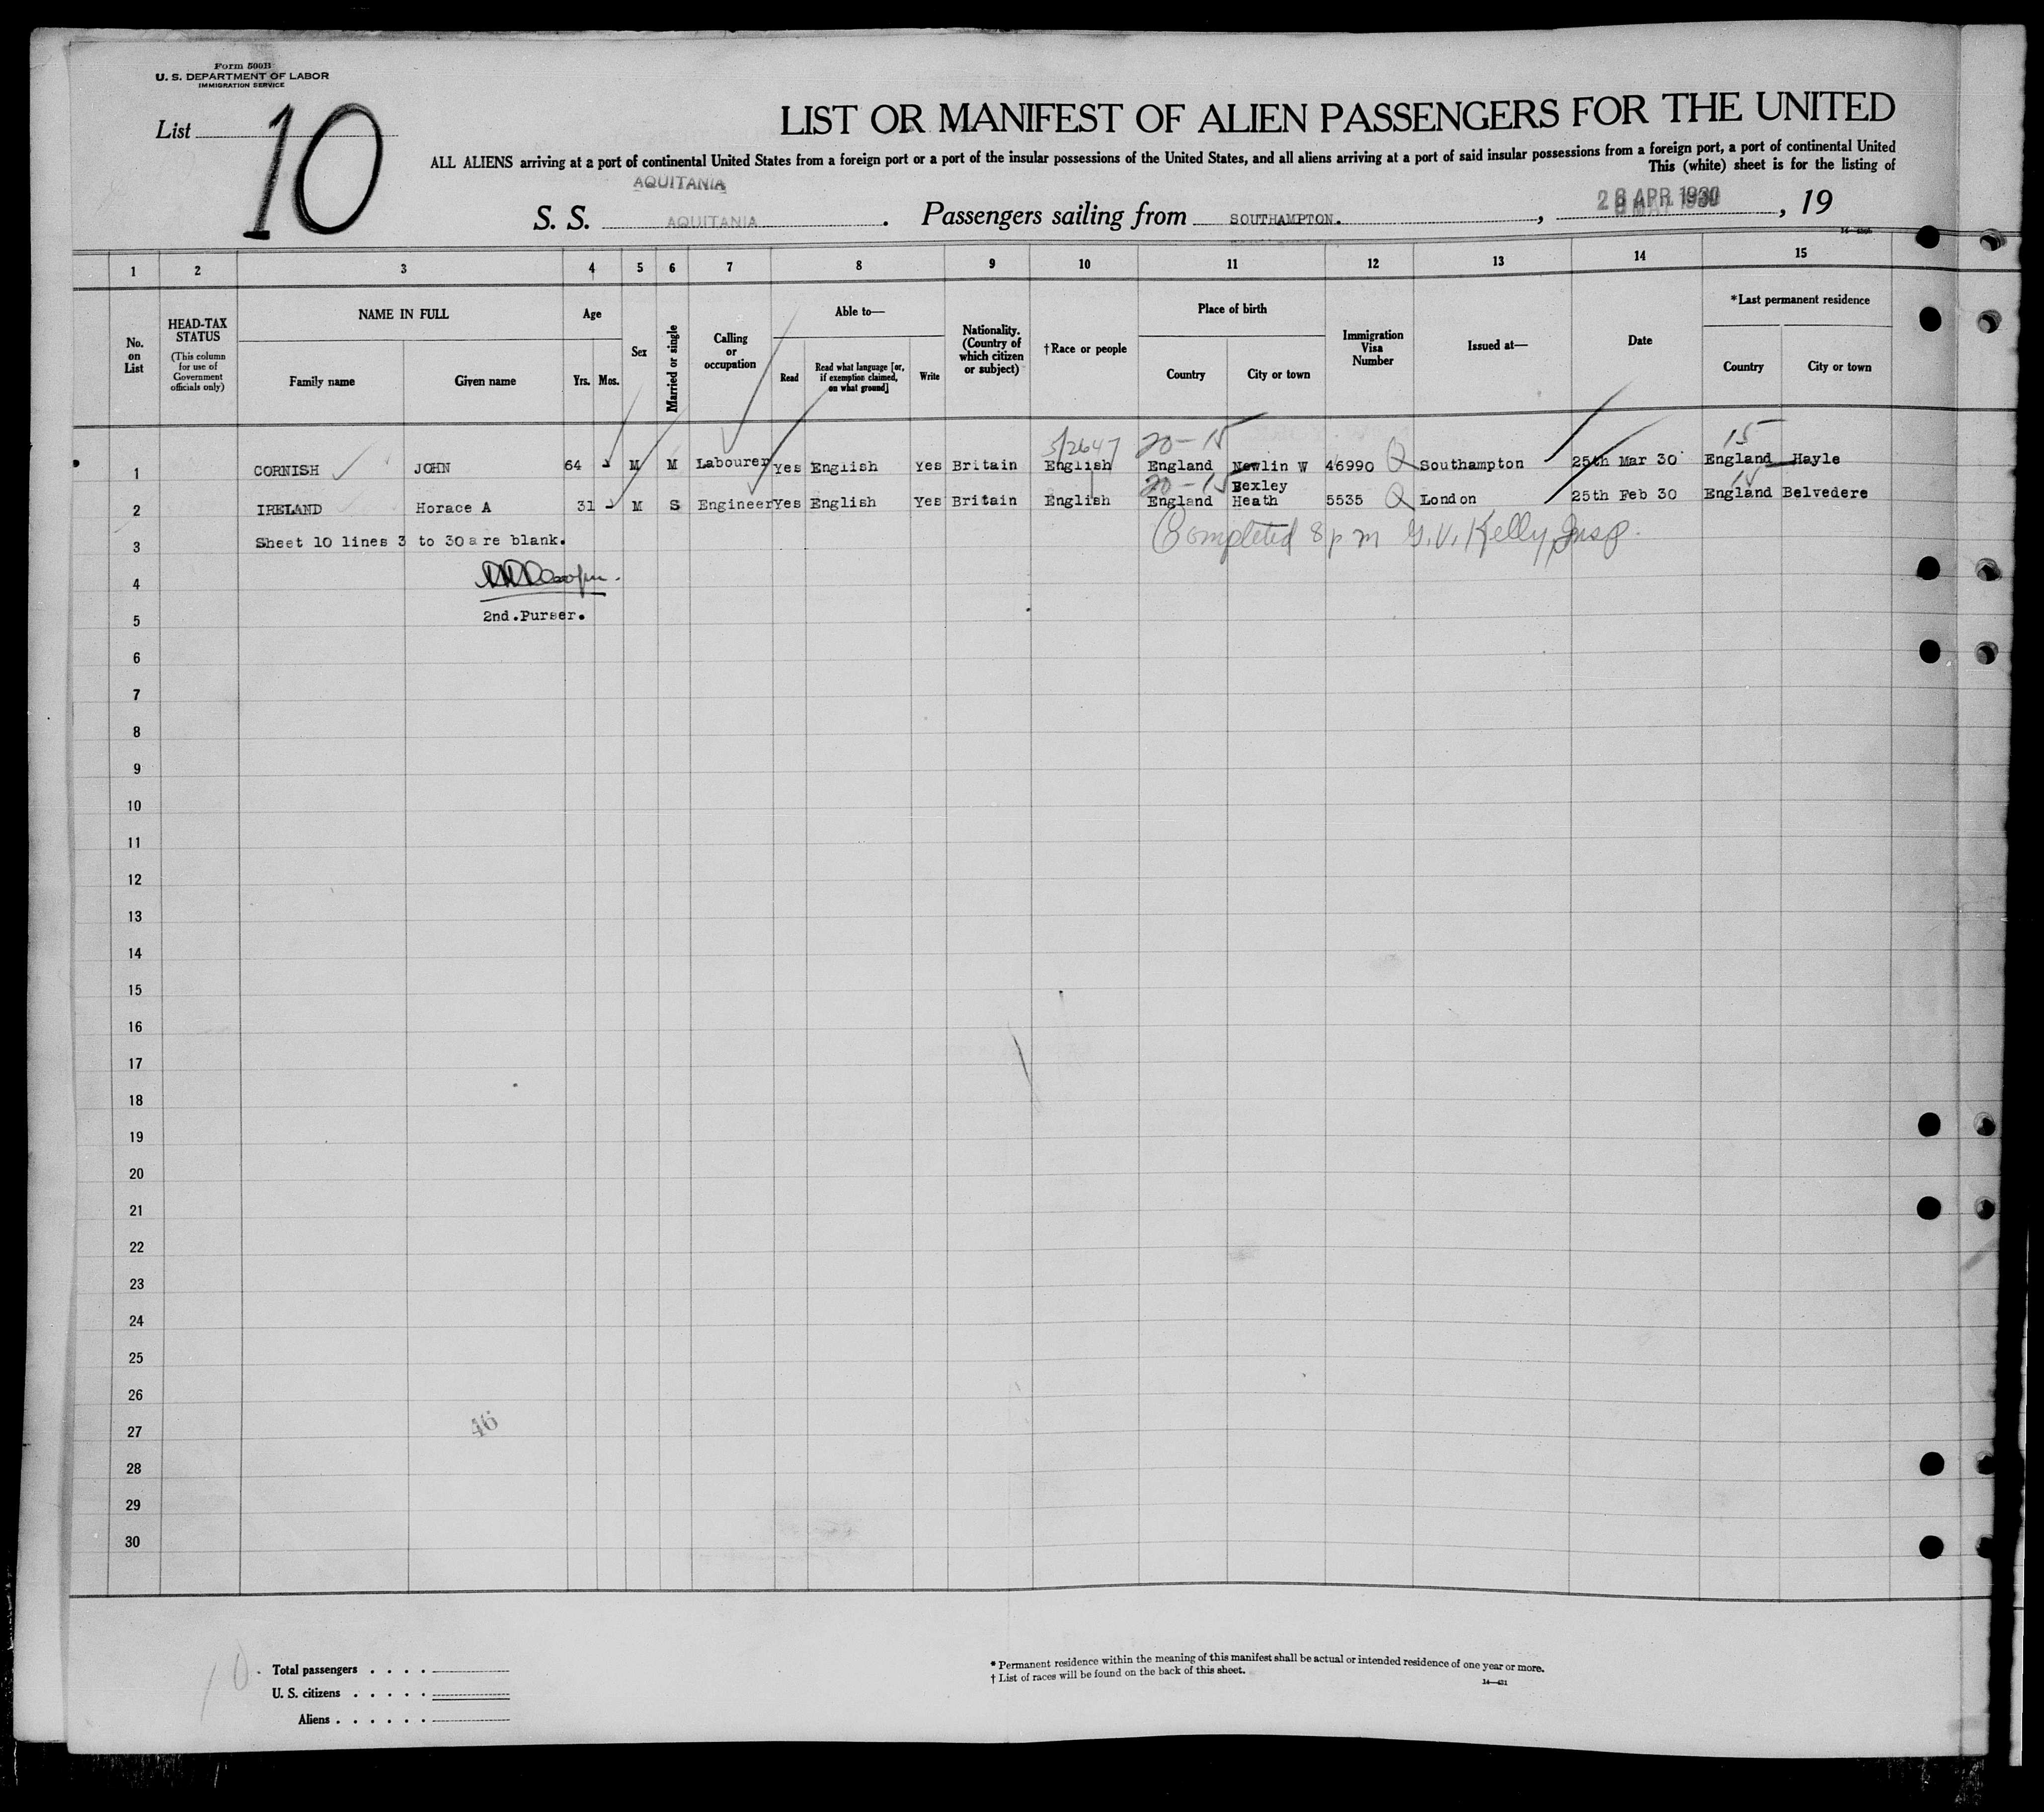 Form 500B
U. S. DEPARTMENT OF LABOR
IMMIGRATION SERVICE
List 10
LIST OR MANIFEST OF ALIEN PASSENGERS FOR THE UNITED
ALL ALIENS arriving at a port of continental United States from a foreign port or a port of the insular possessions of the United States, and all aliens arriving at a port of said insular possessions from a foreign port, a port of continental United
This (white) sheet is for the listing of
AQUITANIA
S. S. AQUITANIA. Passengers sailing from SOUTHAMPTON. , 26 APR 1930 , 19
1 2 3 4 5 6 7 8 9 10 11 12 13 14 15
No. on List
HEAD-TAX STATUS
(This column for use of Government officials only)
NAME IN FULL
Family name Given name
Age
Yrs. Mos.
Sex
Married or single
Calling or occupation
Able to—
Read
Read what language [or, if exemption claimed, on what ground]
Write
Nationality. (Country of which citizen or subject)
†Race or people
Place of birth
Country City or town
Immigration Visa Number
Issued at—
Date
*Last permanent residence
Country City or town
5/2647 20-15 15
1 CORNISH JOHN 64 M M Labourer Yes English Yes Britain English England Newlin W 46990 Q Southampton 25th Mar 30 England Hayle
20-15 Bexley 15
2 IRELAND Horace A 31 M S Engineer Yes English Yes Britain English England Heath 5535 Q London 25th Feb 30 England Belvedere
3 Sheet 10 lines 3 to 30 are blank. Completed 8 p m G. V. Kelly, Insp.
4
5 2nd.Purser.
6
7
8
9
10
11
12
13
14
15
16
17
18
19
20
21
22
23
24
25
26
27 46
28
29
30
10
Total passengers . . . .
U. S. citizens . . . . .
Aliens . . . . . .
* Permanent residence within the meaning of this manifest shall be actual or intended residence of one year or more.
† List of races will be found on the back of this sheet.
14—431